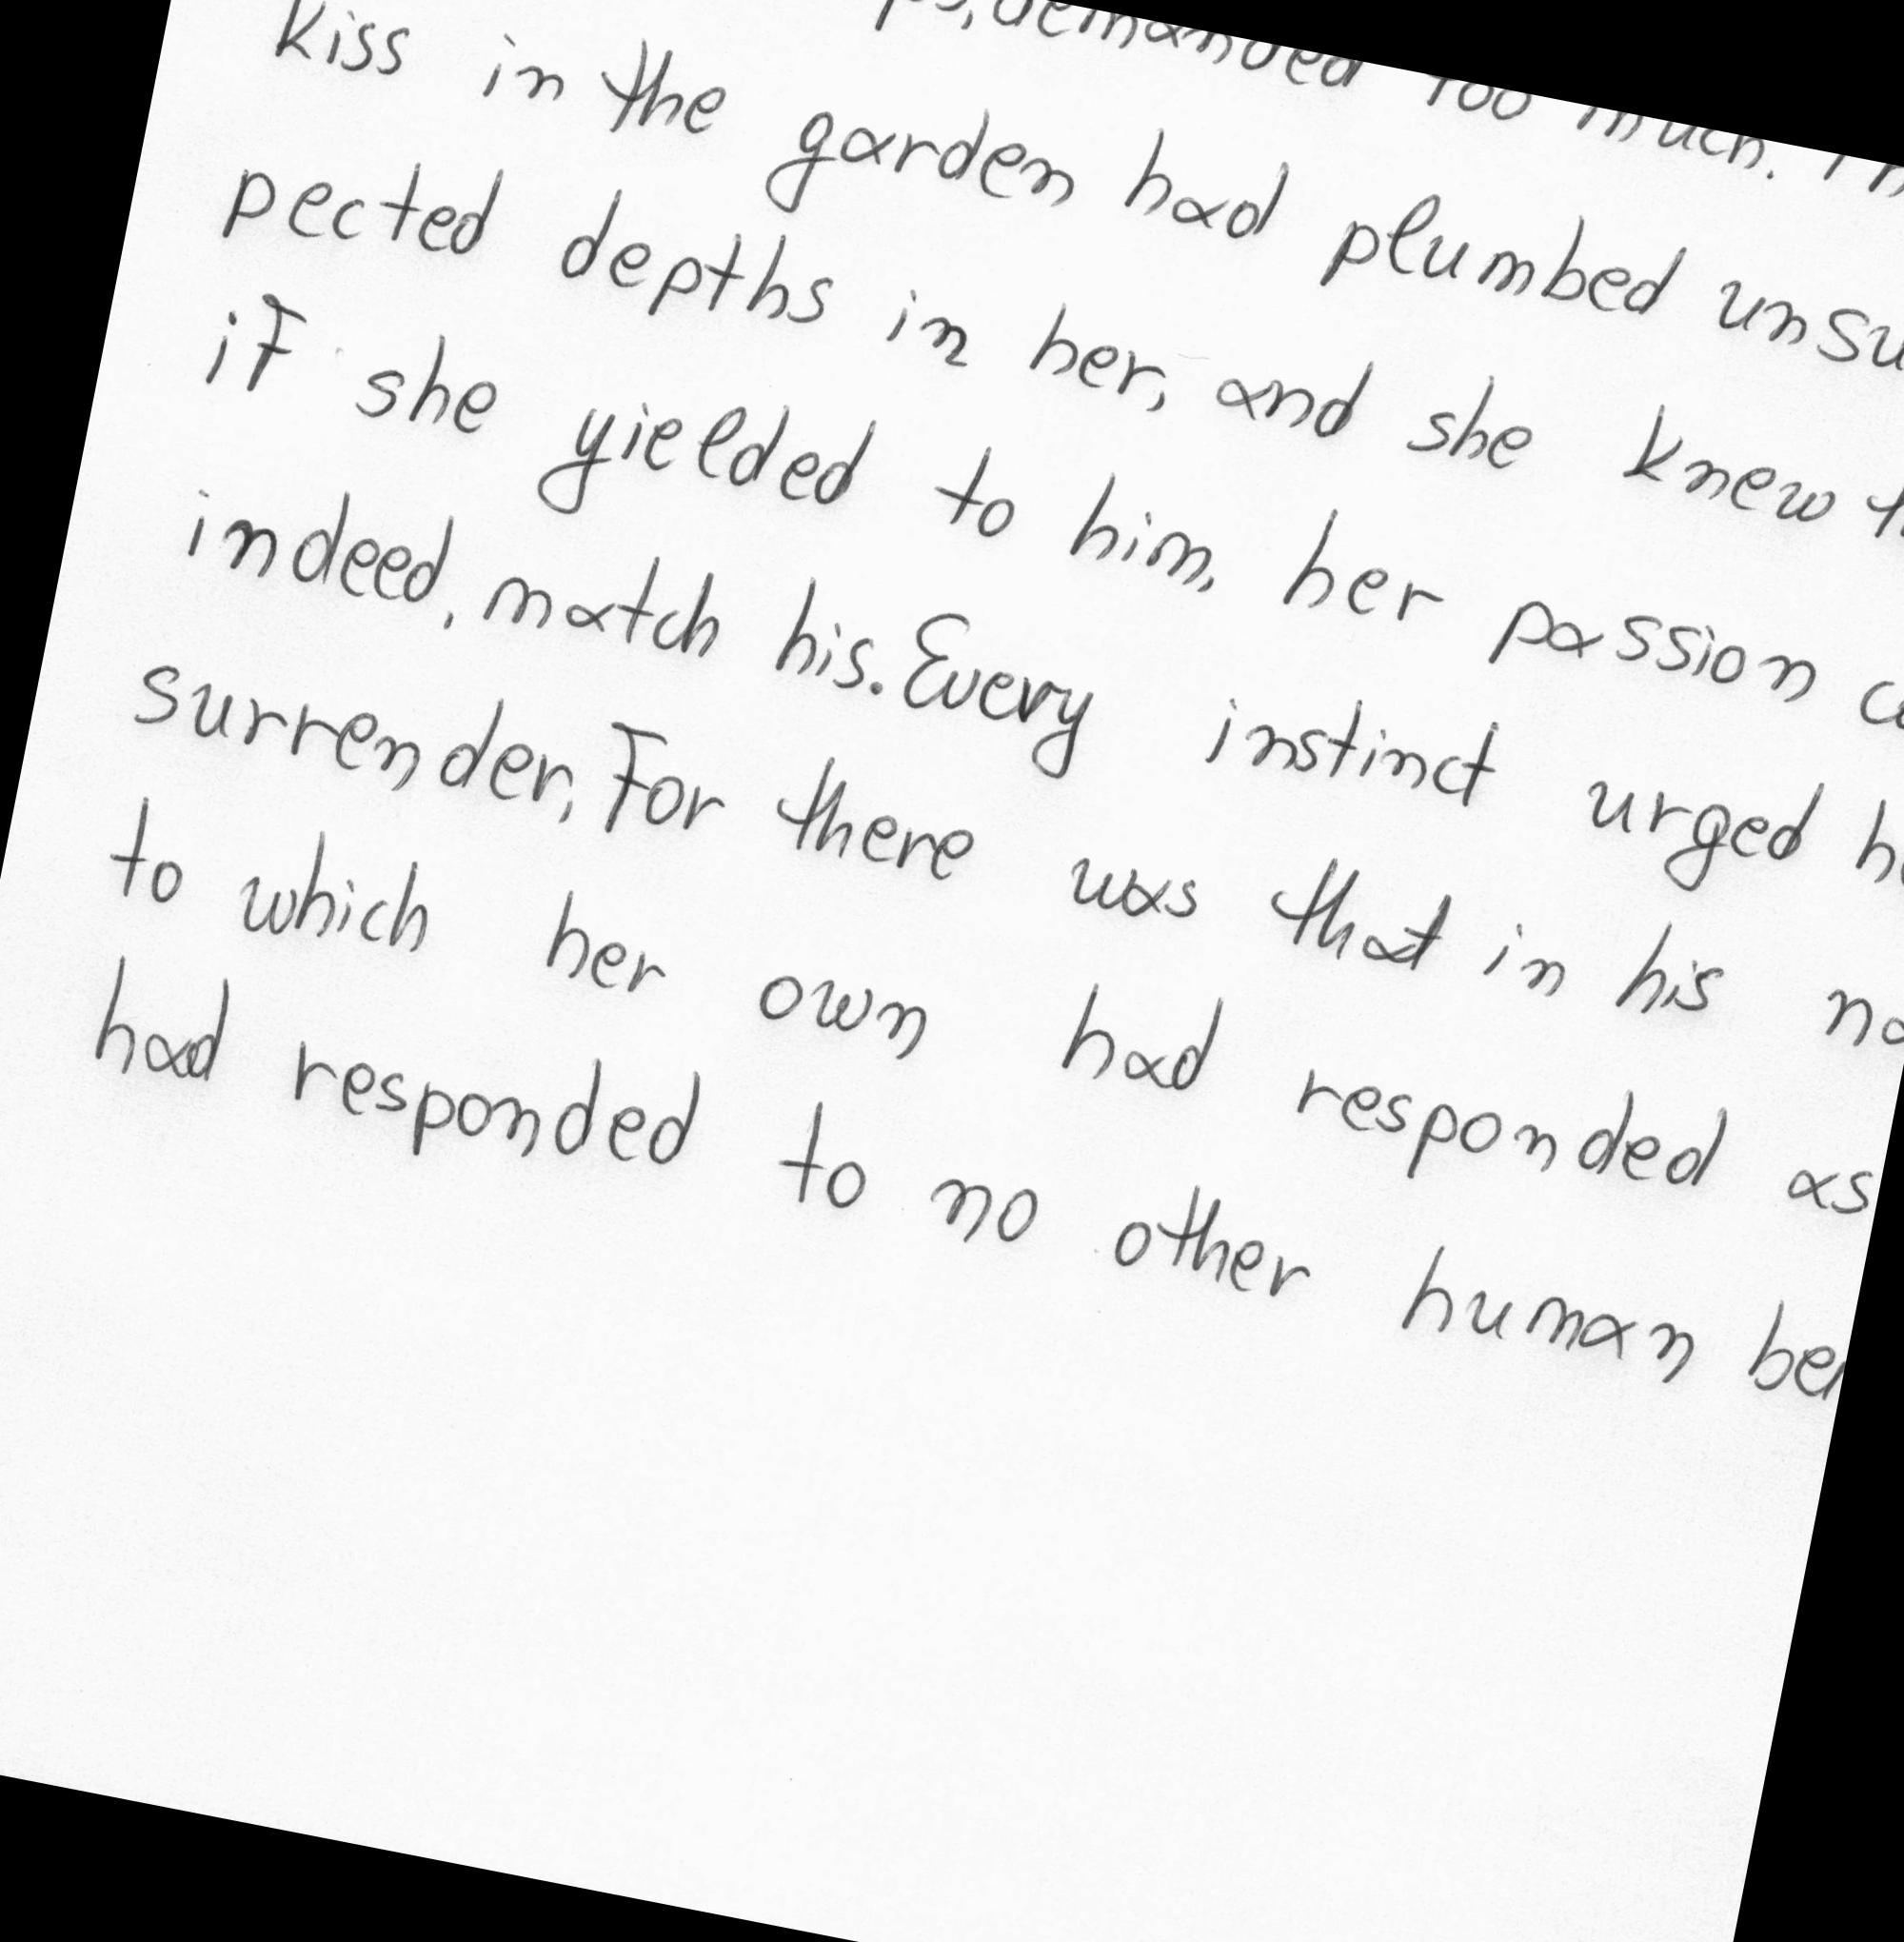 demanded too much.
kiss in the garden had plumbed unsu
pected depths in her, and she knew
if she yielded to him, her passion
indeed, match his. Every instinct urged
surrender, for there was that in his
to which her own had responded as
had responded to no other human